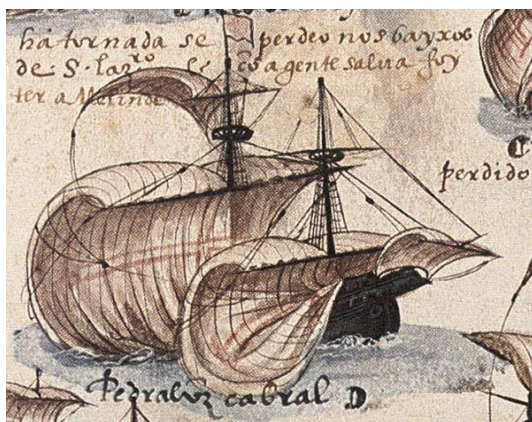 ha tornada se perdeo nos bayxos
de S. Lazro e cõ a gente salva foy
ter a Melinde
perdido
Pedralvz cabral D